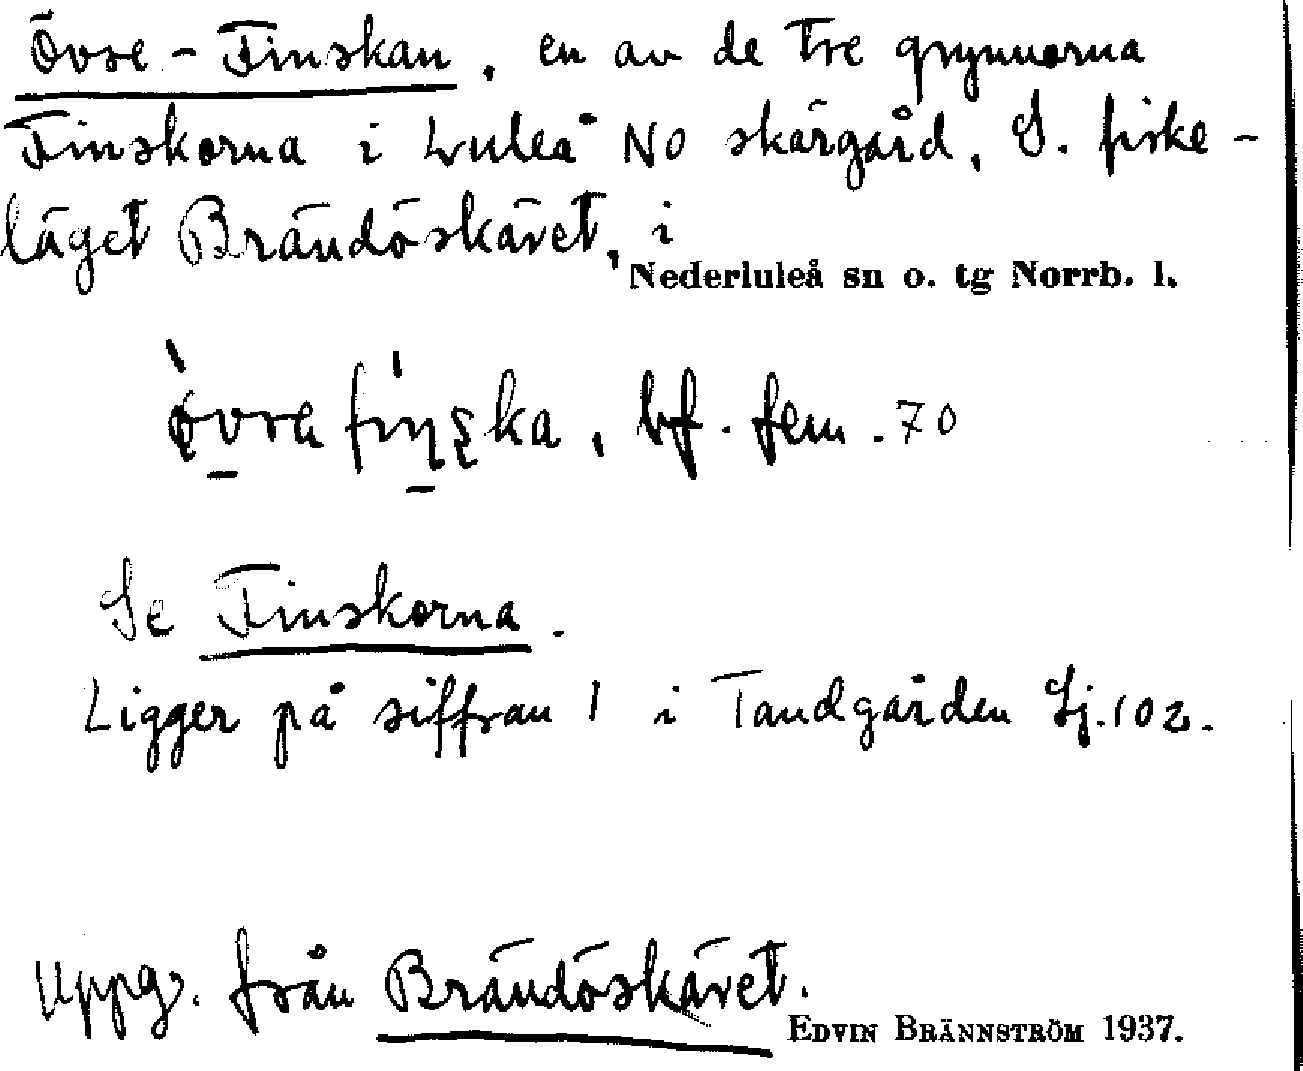 Övre-Finskan, en av de tre grynnorna
Finskorna i Luleå NO skärgård, S. fiske-
läget Brändöskäret, i
Nederluleå sn o. tg Norrb. l.
bf. fem. 70
Se Finskorna.
Ligger på siffran 1 i Tandgården Sj. 102.
Uppg. från Brändöskäret.
EDVIN BRÄNNSTRÖM 1937.